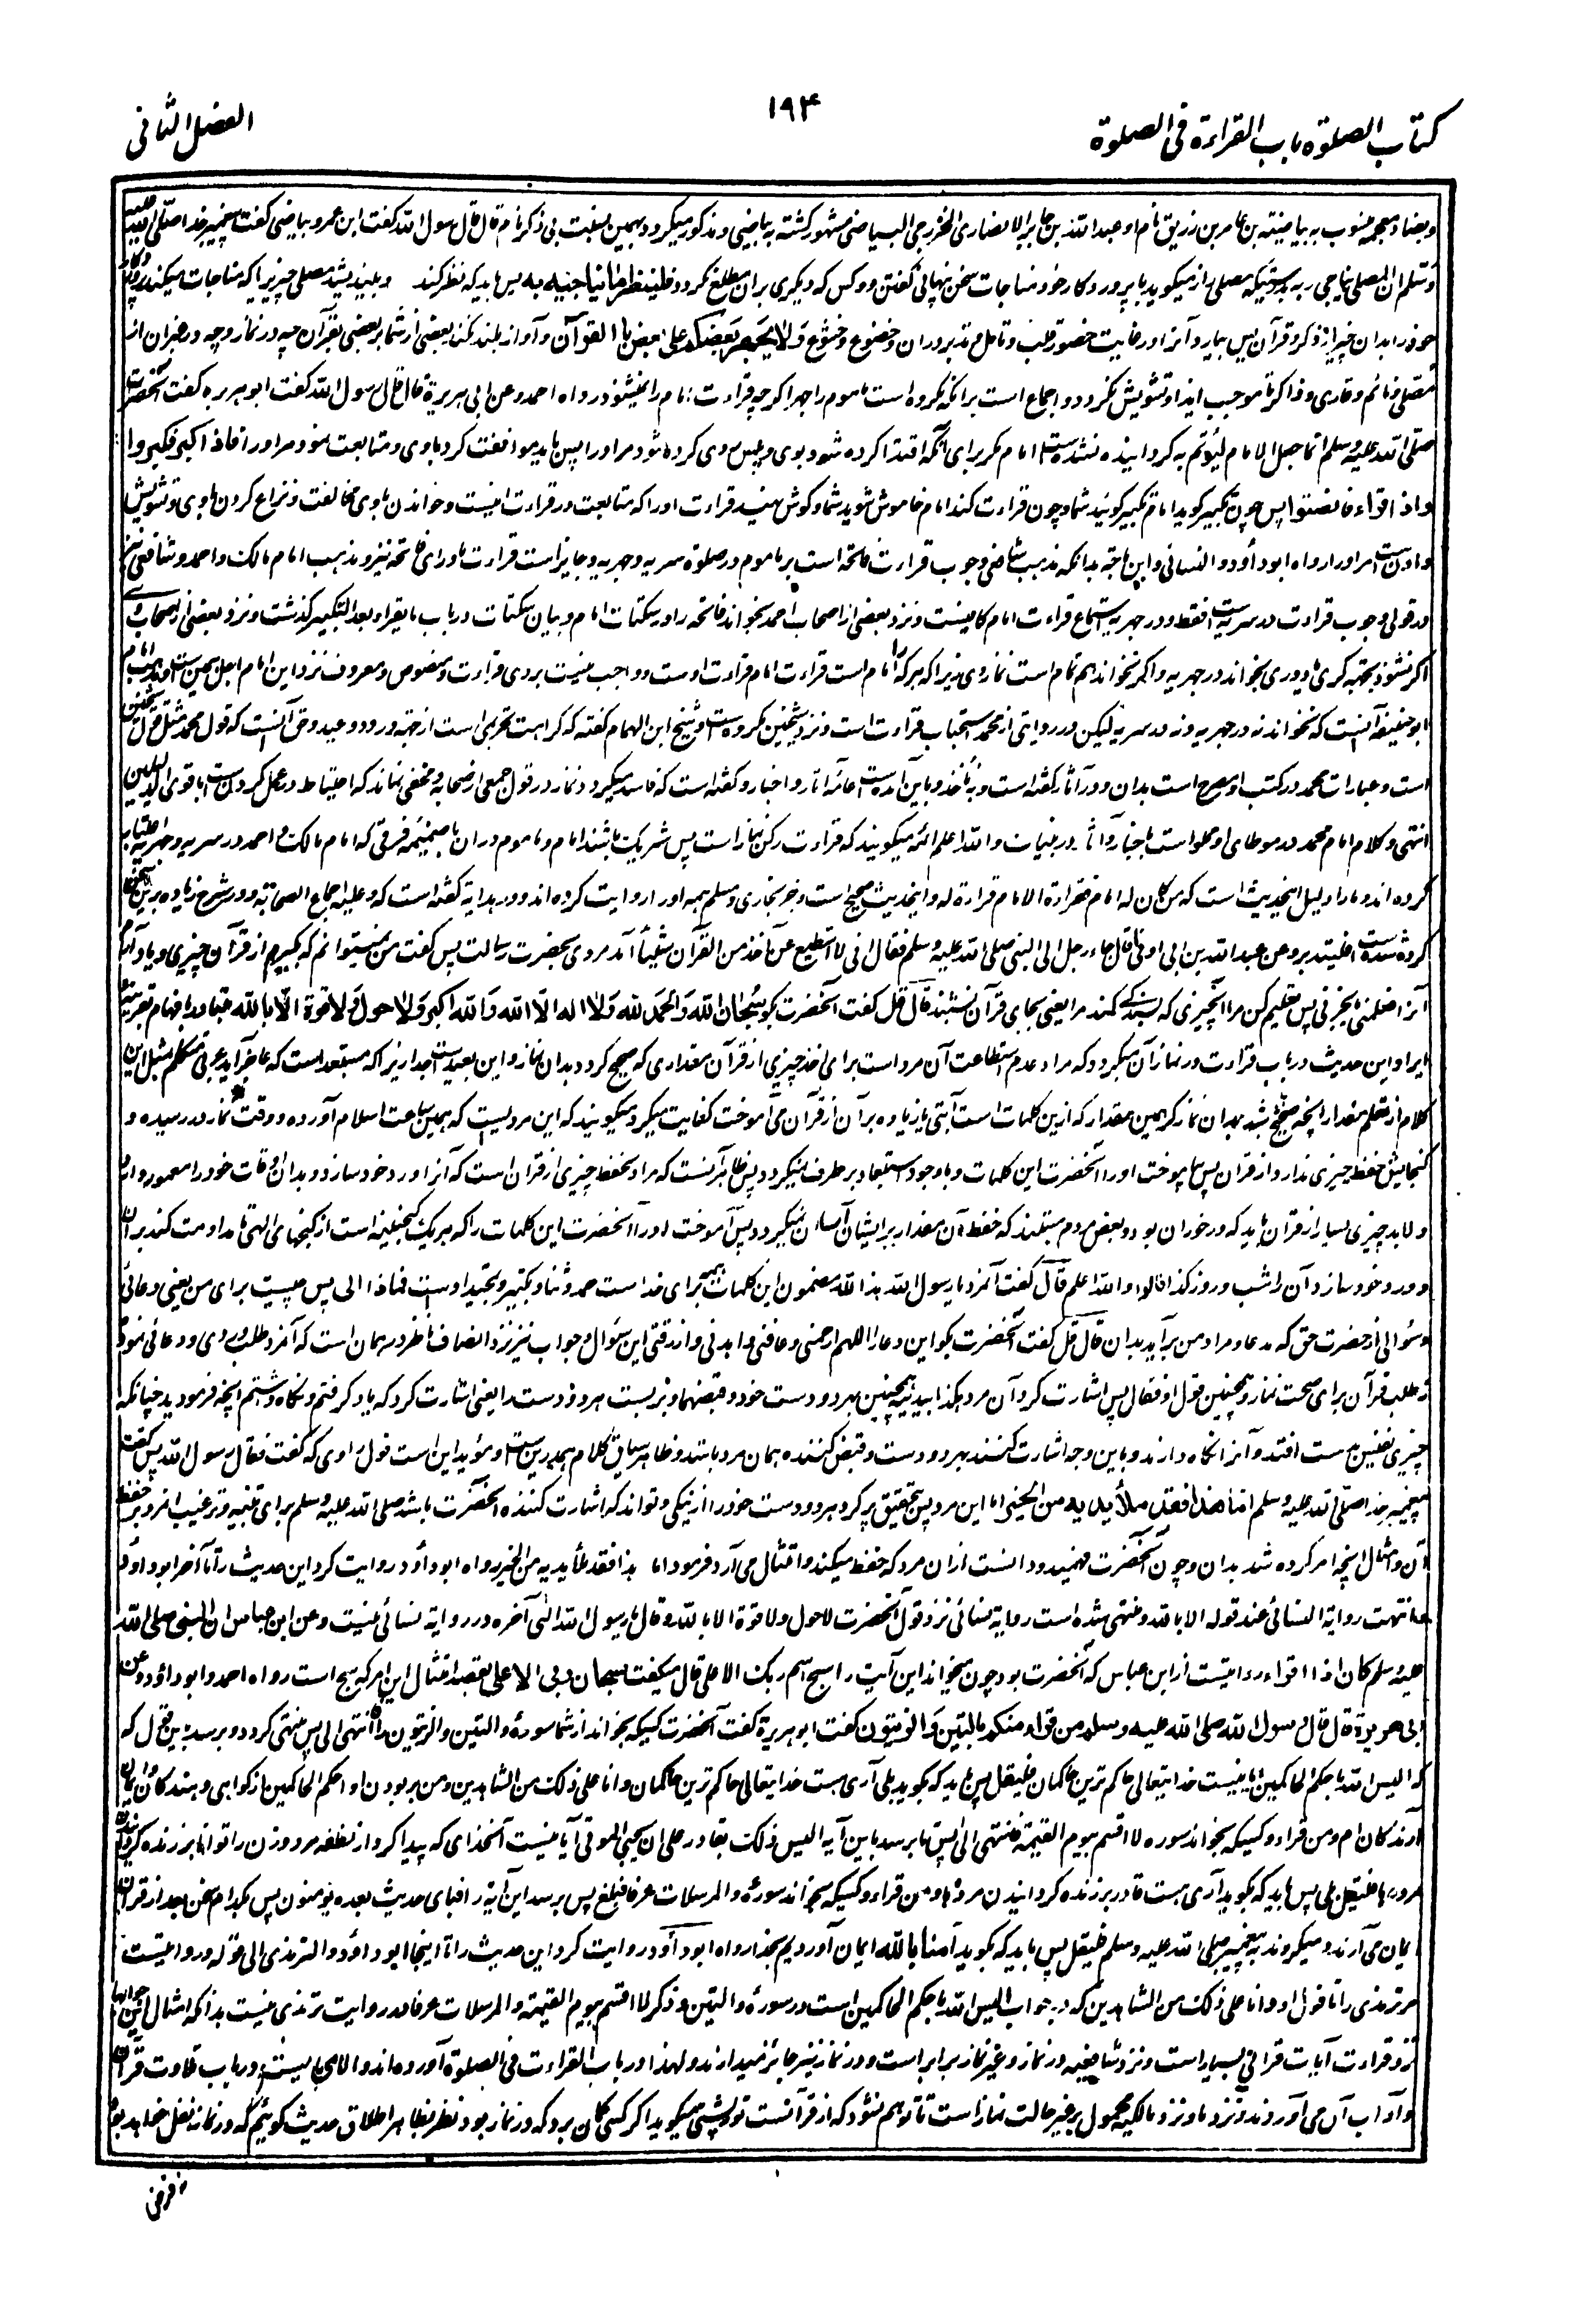 كتاب الصلوة باب القراءة فى الصلوة
۱۹۴
الفصل الثانى
وبضاد معجمه منسوب به بياضة بن عامر بن زريق نام او عبد الله بن جابر الانصارى الخزرجى البياضى مشهور گشته به بياضى ومذكور ميگردد بهمين نسبت بى ذكر نام قال قال رسول الله گفت ابن عمرو بياضى گفت پيغمبر خدا صلى الله عليه
وسلم ان المصلى يناجى ربه بدرستيكه مصلى راز ميگويد با پروردگار خود مناجات سخن پنهانى گفتن دو كس كه ديگرى بر ان مطلع نگردد فلينظر ما يناجيه به پس بايد كه نظر كند و بينديشد مصلى چيزيرا كه مناجات ميكند پروردگار
خود را بدان چيز از ذكر و قرآن پس بيارد آنرا در غايت حضور قلب و تامل و تدبر دران و خضوع و خشوع ولا يجهر بعضكم على بعض بالقرآن و آواز بلند نكند بعضى از شما بر بعضى بقرآن چه در نماز و چه در غير ان از
مصلى و نائم و قارى و ذاكر تا موجب ايذا و تشويش نگردد و اجماع است برانكه مكروه است ماموم را جهر اگرچه قراءت امام را نشنود رواه احمد وعن ابى هريرة قال قال رسول الله گفت ابو هريره گفت آنحضرت
صلى الله عليه وسلم انما جعل الامام ليؤتم به گردانيده نشده است امام مگر براى آنكه اقتدا كرده شود بوى و پس روى كرده شود مر او را پس بايد موافقت كرد باوى و متابعت نمود مر او را فاذا اكبر فكبروا
واذا قرأ فانصتوا پس چون تكبير گويد امام تكبير گوئيد شما و چون قراءت كند امام خاموش شويد شما و گوش نهيد قراءت او را كه متابعت در قراءت اينست و خواندن باوى مخالفت و نزاع كردن باوى و تشويش
دادن است مر او را رواه ابو داؤد والنسائى وابن ماجة بدانكه مذهب شافعى وجوب قراءت فاتحه است بر ماموم در صلوة سريه و جهريه و جايز است قراءت ماوراى فاتحه نيز و مذهب امام مالك و احمد و شافعى نيز
در قولى وجوب قراءت در سريه است فقط و در جهريه استماع قراءت امام كافيست و نزد بعضى از اصحاب احمد بخواند فاتحه را در سكتات امام و بيان سكتات در باب ما يقرأ بعد التكبير گذشت و نزد بعضى از اصحاب وى
اگر نشنود بجهت كرى يا دورى بخواند در جهريه و اگر نخواند هم تمام است نماز وى زيرا كه هر كرا امام است قراءت امام قراءت اوست و واجب نيست بر وى قراءت و منصوص و معروف نزد اين امام اجل همين است و مذهب امام
ابو حنيفه آنست كه نخواند نه در جهريه و نه در سريه ليكن در روايتى از محمد استحباب قراءت است و نزد شيخين مكروه است و شيخ ابن الهمام گفته كه كراهت تحريمى است از جهت ورود وعيد و حق آنست كه قول محمد مثل قول شيخين
است و عبارات محمد در كتب او مصرح است بدان و در آثار گفته است و به ناخذ و باين آمده است عامه آثار و اخبار و گفته است كه فاسد ميگردد نماز در قول جمعى از صحابه و مخفى نماند كه احتياط در عمل كردن است باقوى الدليلين
انتهى و كلام امام محمد در موطاى او مملو است باخبار و آثار درين باب و الله اعلم ائمه ميگويند كه قراءت ركن نماز است پس شريك باشند امام و ماموم دران با ضميمه فرقى كه امام مالك و احمد در سريه و جهريه اعتبار
كرده اند و ما را دليل اينحديث است كه من كان له امام فقراءة الامام قراءة له و اينحديث صحيح است و جز بخارى و مسلم همه او را روايت كرده اند و در هدايه گفته است كه و عليه اجماع الصحابة و در شرح زياده برين تحقيق
كرده شده است فليتدبر وعن عبد الله بن ابى اوفى قال جاء رجل الى النبى صلى الله عليه وسلم فقال انى لا استطيع عن آخذ من القرآن شيئا آمد مردى بحضرت رسالت پس گفت من نميتوانم كه بگيرم از قرآن چيزى و ياد آرم
آنرا فعلمنى ما يجزئنى پس تعليم كن مرا آنچيزى كه بسندگى كند مرا يعنى بجاى قرآن بنشيند قال قل گفت آنحضرت بگو سبحان الله والحمد لله ولا اله الا الله والله اكبر ولا حول ولا قوة الا بالله متبادر بافهام بقرينه
ايراد اين حديث در باب قراءت در نماز آن ميگردد كه مراد عدم استطاعت آن مرد است براى اخذ چيزى از قرآن مقدارى كه صحيح گردد بدان نماز و اين بعيد است بعيد زيرا كه مستبعد است كه عاجز آيد عربى متكلم مثل اين
كلام از تعلم مقدار آنچه صحيح باشد بدان نماز كه همين مقدار كه ازين كلمات است آيتى يا زياده بر آن از قرآن مى آموخت كفايت ميكرد ميگويند كه اين مرديست كه همين ساعت اسلام آورده و وقت نماز در رسيده و
گنجايش حفظ چيزى ندارد از قران پس بياموخت او را آنحضرت اين كلمات و با وجود استبعاد بر طرف نميگردد پس ظاهر آنست كه مراد حفظ چيزى از قران است كه آنرا ورد خود سازد و بدان اوقات خود را معمور دارد
و لابد چيزى بسيار از قران بايد كه ورد خوران بود و بعض مردم مبتلند كه حفظ آن مقدار بر ايشان آسان نميگردد پس آموخت او را آنحضرت اين كلمات را كه هر يك گنجينه است از گنجهاى الهى تا مداومت كند بر آن
و ورد خود سازد آن را شب و روز كذا قالوا و الله اعلم قال گفت آنمرد يا رسول الله هذا لله مضمون اين كلمات همه براى خداست حمد و ثنا و تكبير و تمجيد اوست فماذا الى پس چيست براى من يعنى دعائى
و سؤالى از حضرت حق كه مدعا و مراد من برآيد بدان قال قل گفت آنحضرت بگو اين دعا را اللهم ارحمنى وعافنى واهدنى وارزقنى اين سؤال و جواب نيز نزد انصاف ناظر در همان است كه آنمرد طلب ورد وى و دعائى نمود
نه طلب قرآن براى صحت نماز و همچنين قول او فقال پس اشارت كرد آن مرد هكذا بيديه همچنين بهر دو دست خود و قبضهما و بر بست هر دو دست را يعنى اشارت كرد كه ياد گرفتم و نگاه داشتم آنچه فرموديد چنانكه
چيزى نفيس بدست افتد و آنرا نگاه دارند و باين وجه اشارت كننده بهر دو دست و قبض كننده همان مرد باشد و ظاهر سياق كلام همدرين است و مؤيد اين است قول راوى كه گفت فقال رسول الله پس گفت
پيغمبر خدا صلى الله عليه وسلم اما هذا فقد ملأ يديه من الخير اما اين مرد پس بتحقيق پر كرد هر دو دست خود را از نيكى و تواند كه اشارت كننده آنحضرت باشد صلى الله عليه وسلم براى تنبيه و ترغيب آنمرد بر حفظ
آن و امتثال آنچه امر كرده شد بدان و چون آنحضرت فهميد و دانست از ان مرد كه حفظ ميكند و امتثال مى آرد فرمود اما هذا فقد ملأ يديه من الخير رواه ابو داؤد روايت كرد اين حديث را تا آخر ابو داؤد
وانتهت رواية النسائى عند قوله الا بالله و منتهى شده است روايه نسائى نزد قول آنحضرت لا حول ولا قوة الا بالله و قال يا رسول الله الى آخره در روايه نسائى نيست وعن ابن عباس ان النبى صلى الله
عليه وسلم كان اذا اقرأ روايتست از ابن عباس كه آنحضرت بود چون ميخواند اين آيت را سبح اسم ربك الاعلى قال ميگفت سبحان ربى الاعلى بقصد امتثال اين امر كه سبح است رواه احمد وابو داؤد وعن
ابى هريرة قال قال رسول الله صلى الله عليه وسلم من قراء منكم بالتين والزيتون گفت ابو هريرة گفت آنحضرت كسيكه بخواند از شما سورۀ والتين والزيتون را انتهى الى پس منتهى گردد و برسد باين قول كه
كه اليس الله باحكم الحاكمين آيا نيست خدايتعالى حاكم ترين حاكمان فليقل پس بايد كه بگويد بلى آرى هست خدايتعالى حاكم ترين حاكمان وانا على ذلك من الشاهدين و من بر بودن او احكم الحاكمين از گواهى دهندگان و ايمان
آرندگان ام ومن قراء و كسيكه بخواند سوره لا اقسم بيوم القيمة فانتهى الى پس تا برسد باين آيه اليس ذلك بقادر على ان يحيى الموتى آيا نيست آنخداى كه پيدا كرد از نطفه مرد و زن را توانا بر زنده گردانيدن
مردها فليقل بلى پس بايد كه بگويد آرى هست قادر بر زنده گردانيدن مردها ومن قراء و كسيكه بخواند سورۀ والمرسلات عرفا فبلغ پس برسد اين آية را فباى حديث بعده يؤمنون پس بكدام سخن بعد از قرآن
ايمان مى آرند و ميگروند به پيغمبر صلى الله عليه وسلم فليقل پس بايد كه بگويد آمنا بالله ايمان آورديم بخدا رواه ابو داؤد روايت كرد اين حديث را تا اينجا ابو داؤد والترمذى الى قوله و روايتست
مر ترمذى را تا قول او وانا على ذلك من الشاهدين كه در جواب اليس الله باحكم الحاكمين است در سورۀ والتين و ذكر لا اقسم بيوم القيمة والمرسلات عرفا در روايت ترمذى نيست بدانكه امثال اين جوابها
نزد قراءت آيات قرانى بسيار است و نزد شافعيه در نماز و غير نماز برابر است و در نماز نيز جائز ميدارند و لهذا در باب القراءت فى الصلوة آورده اند و الا مى بايست در باب تلاوت قرآن
و آداب آن مى آوردند و نزد ما و نزد مالكيه محمول بر غير حالت نماز است تا توهم نشود كه از قرآنست تورپشتى ميگويد اگر كسى گمان برد كه در نماز بود نظر بظاهر اطلاق حديث گوئيم كه در نماز نفل خواهد بود
نه فرض